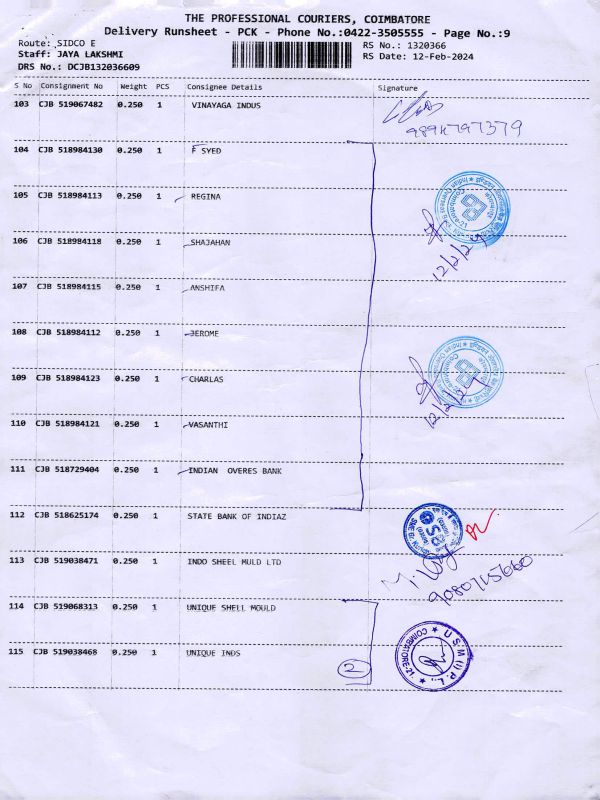 THE PROFESSIONAL COURIERS, COIMBATORE
Delivery Runsheet - PCK - Phone No.:0422-3505555 - Page No.:9
Route: SIDCO E RS No.: 1320366
Staff: JAYA LAKSHMI RS Date: 12-Feb-2024
DRS No.: DCJB132036609
S No Consignment No Weight PCS Consignee Details Signature
103 CJB 519067482 0.250 1 VINAYAGA INDUS
9894797379
104 CJB 518984130 0.250 1 F SYED
105 CJB 518984113 0.250 1 REGINA
106 CJB 518984118 0.250 1 SHAJAHAN
12/2/24
107 CJB 518984115 0.250 1 ANSHIFA
108 CJB 518984112 0.250 1 JEROME
109 CJB 518984123 0.250 1 CHARLAS
12/2/24
110 CJB 518984121 0.250 1 VASANTHI
111 CJB 518729404 0.250 1 INDIAN OVERES BANK
112 CJB 518625174 0.250 1 STATE BANK OF INDIAZ
113 CJB 519038471 0.250 1 INDO SHEEL MULD LTD
9080715660
114 CJB 519068313 0.250 1 UNIQUE SHELL MOULD
115 CJB 519038468 0.250 1 UNIQUE INDS
2
U S M (I) P. L.,
COIMBATORE-21